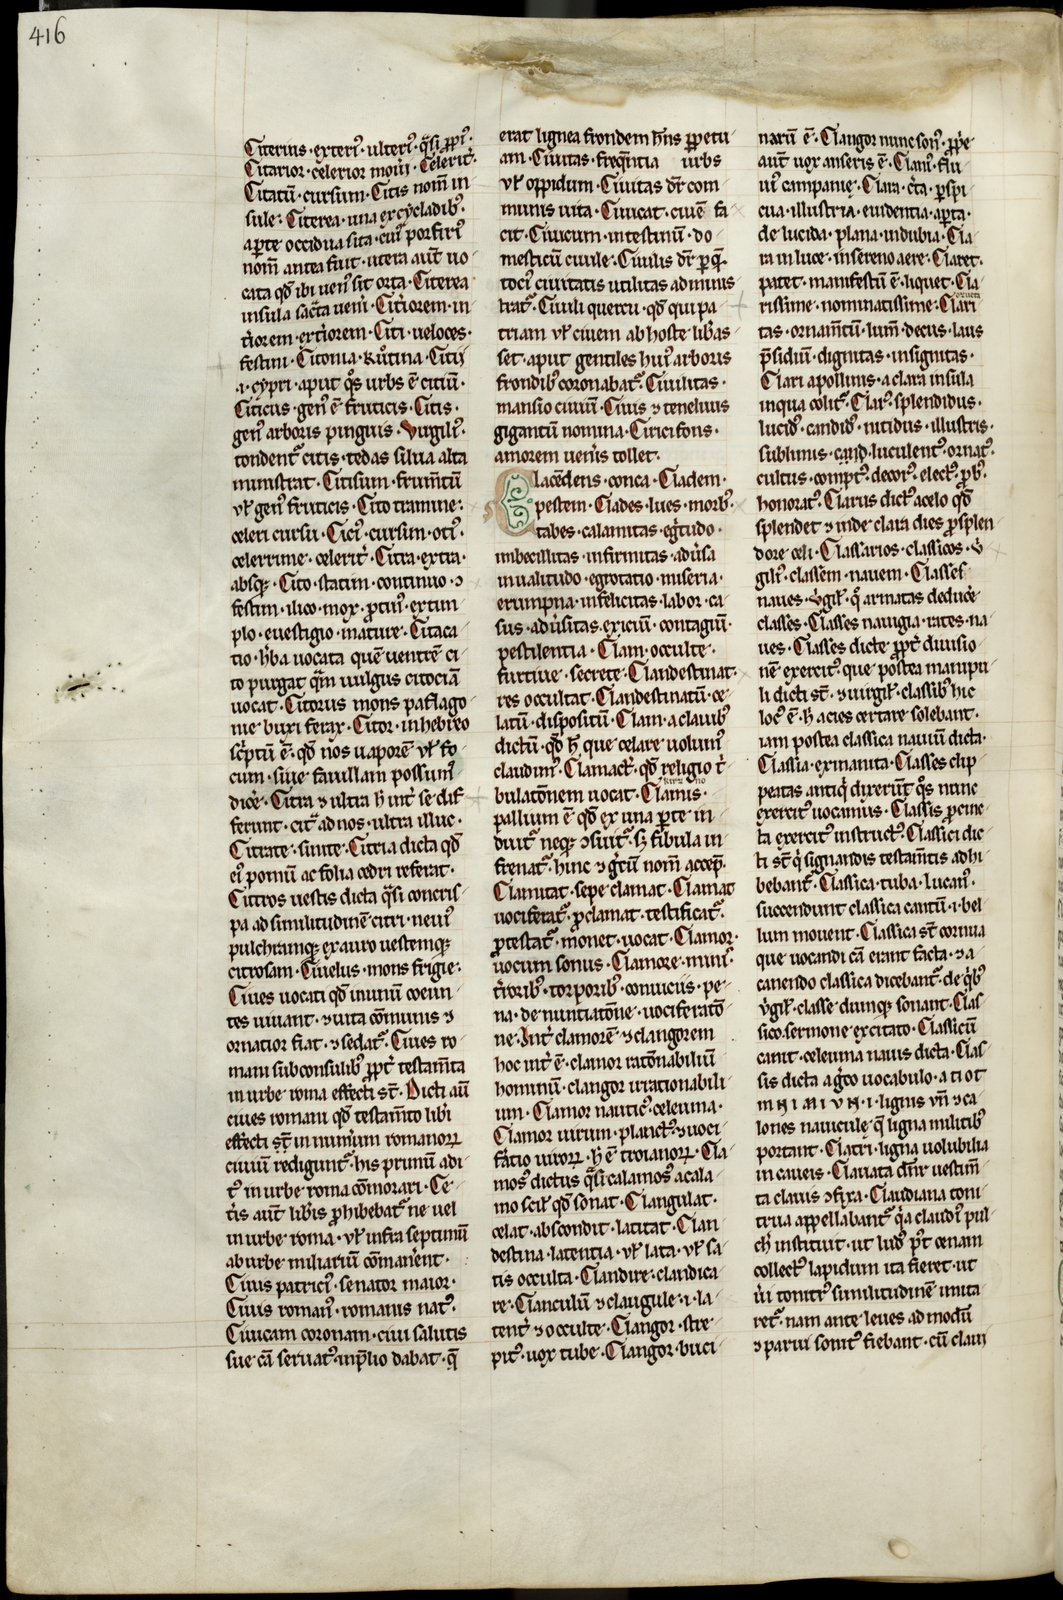 416
Citerius · exteri᷒ · ulteri᷒ · q̄si ꝓpi᷒ ·
Citatior · celerior motu · Celerit᷑ ·
Citatū · cursum · Citis nom̄ in
sule · Citerea · una ex cycladib᷒ ·
aperte occidua sita · cui᷒ porfiri᷒
nom̄ antea fuit · utera aut̄ uo
cata qđ ibi uen᷒ sit orta · Citerea
insula sac̄ta ueni᷑ · Citiorem · in
t̄iorem · ext̄iorem · Citi · ueloces ·
festini · Citonia · Citij
.i. cypri · aput q̊s urbs ē citiū ·
Citicus · gen᷒ ē fruticis · Citis ·
gen᷒ arboris pinguis · Virgili᷒ ·
tondent᷑ citis · tedas silua alta
ministrat · Citisum · frum̄tū
ul̄ gen᷒ fruticis · Cito tramine ·
celeri cursu · Cici᷒ · cursum · oti᷒ ·
celerrime · celerit᷑ · Citra · extra ·
absq; · Cito · statim · continuo · ⁊
festim · ilico · mox · ꝓtin᷒ · extim
plo · euestigio · mature · Citaca
tio · h̄ba uocata quē uentrē ci
to purgat q̄m uulgus citociā
uocat · Citorus mons paflago
nie buxi ferax · Citor · in hebreo
sc̄ptū ē · qđ nos uaporē ul̄ fo
cum · siue fauillam possum᷒
dicē · Citra ⁊ ultra h̄ int᷑ se dif
ferunt · cit᷑ ad nos · ultra illuc ·
Citrate · sinite · Citria dicta qđ
ei᷒ pomū ac folia cedri referat ·
Citros uestis dicta q̄si concris
pa ad similitudinē citri · neui᷒
pulchramq; ex auro uestemq;
citrosam · Ciuelus · mons frigie ·
Ciues uocati qđ in unū coeun
tes uiuant · ⁊ uita cōmunis ⁊
ornatior fiat · ⁊ sedat᷑ · Ciues ro
mani sub consulib᷒ ꝓpt᷑ testam̄ta
in urbe roma effecti st̄ · Dicti aūt
ciues romani qđ testam̄to lib̄i
effecti st̄ in num̄um romanoꝝ
ciuiū redigunt᷑ · his primū adi
t᷒ in urbe roma cōmorari · Ce
t̄is aut̄ lib̄is ꝓhibebat᷑ ne uel
in urbe roma · ul̄ infra septimū
ab urbe miliariū cōman̄ent ·
Ciuis patrici᷒ · senator maior ·
Ciuis roman᷒ · romanis nat᷒ ·
Ciuicam coronam · ciui salutis
sue cā seruat᷒ in p̄lio dabat · q̄
erat lignea frondem h̄ns ꝑpetu
am · Ciuitas · freq̄ntia urbs
ul̄ oppidum · Ciuitas dr̄ com
munis uita · Ciuicat · ciuē fa
cit · Ciuicum · intestinū · do
mesticū ciuile · Ciuilis dr̄ ꝑ q̄
toci᷒ ciuitatis utilitas adminis
trat᷑ · Ciuili quercu · qđ qui pa
triam ul̄ ciuem ab hoste lib̄as
set · aput gentiles hui᷒ arboris
frondib᷒ coronabat᷑ · Ciuilitas ·
mansio ciuiū · Cius ⁊ teneluus
gigantū nomina · Cirici fons ·
amorem uen̄is tollet ·
Clacēdens · conca · Cladem ·
pestem · Clades · lues · morb᷒ ·
tabes · calamitas · eg̃tudo ·
imbecillitas · infirmitas · adūsa
inualitudo · egrotatio · miseria ·
erumpna · infelicitas · labor · ca
sus · adūsitas · exiciū · contagiū ·
pestilentia · Clam · occulte ·
furtiue · secrete · Clandestinat ·
res occultat · Clandestinatū · ce
latū · dispositū · Clam · a clauib᷒
dictū · qđ h̄ que celare uolum᷒
claudim᷒ · Clamact᷑ · qđ religio t᷑
bulatōnem uocat · Clamis ·
pallium ē qđ ex una ꝑte in
duit᷑ neq; ↄsuit᷑ · sꝫ fibula in
frenat᷑ · hinc ⁊ g̃cū nom̄ accep̄ ·
Clamitat · sepe clamat · Clamat
uociferat᷑ · ꝓclamat · testificat᷑ ·
ꝓtestat᷑ · monet · uocat · Clamor ·
uocum sonus · Clamore · muni᷒
t̄roribus · torporib᷒ · conuiciis · pe
na · de nuntiatōne · uociferatō
ne · Int᷑ clamorē ⁊ clangorem
hoc int᷑ ē · clamor ratōnabiliū
hominū · clangor irrationabili
um · Clamor nautic᷒ · celeuma ·
Clamor uirum · planct᷒ · ⁊ uoci
fātio uiroꝝ · h̄ ē troianoꝝ · Cla
mos᷒ dictus q̄si calamos᷒ a cala
mo scil᷑ qđ sonat · Clangulat ·
celat · abscondit · latitat · Clan
destina · latentia · ul̄ lata · ul̄ sa
tis occulta · Clandire · claudica
re · Clanculū ⁊ claugule · i · la
tent᷑ ⁊ occulte · Clangor · stre
pit᷒ · uox tube · Clangor · buci
narū ē · Clangor nunc son᷒ · ꝓp̄e
aut̄ uox anseris ē · Clani᷒ · flu
ui᷒ campanie · Clara · c̄ta · ꝑspi
cua · illustria · euidentia · aꝑta ·
de lucida · plana · indubia · Cla
ra in luce · in sereno aere · Claret ·
patet · manifestū ē · liquet · Cla
rissime · nominatissime · Clari
tas · ornam̄tū · lum̄ · decus · laus
p̄sidiū · dignitas · insignitas ·
Clari apollinis · a clara insula
in qua colit᷑ · Clar᷒ · splendidus ·
lucid᷒ · candid᷒ · nitidus · illustris ·
sublimis · cand · luculent᷒ · ornat᷒ ·
cultus · compt᷒ · decor᷒ · elect᷒ · ꝓb᷒ ·
honorat᷒ · Clarus dict᷒ a celo qđ
splendet ⁊ inde clara dies ꝓ splen
dore celi · Classarios · classicos · v̄
gili᷒ · classem · nauem · Classes
naues · v̄gil᷑ · q̄ armatas deducē
classes · Classes nauigia · rates · na
ues · Classes dicte ꝓpt᷑ diuisio
nē exercit᷒ · que postea manipu
li dicti st̄ · ⁊ uirgil᷑ · classib᷒ hic
loc᷒ ē · h̄ acies certare solebant ·
iam postea classica nauiū dicta ·
Classia · ex manita · Classes clip
peatas antiq̇ dixerūt q̊s nunc
exercit᷒ uocamus · Classis ꝓcinc
ta exercit᷒ instruct᷒ · Classici dic
ti st̄ q̇ signandis testam̄tis adhi
bebant᷑ · Classica · tuba · lucan᷒ ·
succendunt classica cantū · i · bel
lum mouent · Classica st̄ cornua
que uocandi cā erant facta · ⁊ a
canendo classica dicebant᷑ · de q̇b᷒
v̄gil᷑ · classe diumq; sonant · Clas
sico · sermone · excitato · Classicū
canit · celeuma nauis dicta · Clas
sis dicta a g̃co uocabulo · a ti ot
· i · lignis un̄ ⁊ ca
lones nauicule q̄ ligna militib᷒
portant · Clatri · ligna uolubilia
in caueis · Clauata dn̄r uestim̄
ta clauis ↄfixa · Claudiana toni
trua appellabant᷑ q̇a claudi᷒ pul
ch᷑ instituit · ut lud᷒ p᷒t cenam
collect᷒ lapidum ita fieret · ut
ūi tonitr᷒ similitudinē imita
ret᷑ · nam ante leues ad modū
⁊ parui sonit᷒ fiebant · cū claui